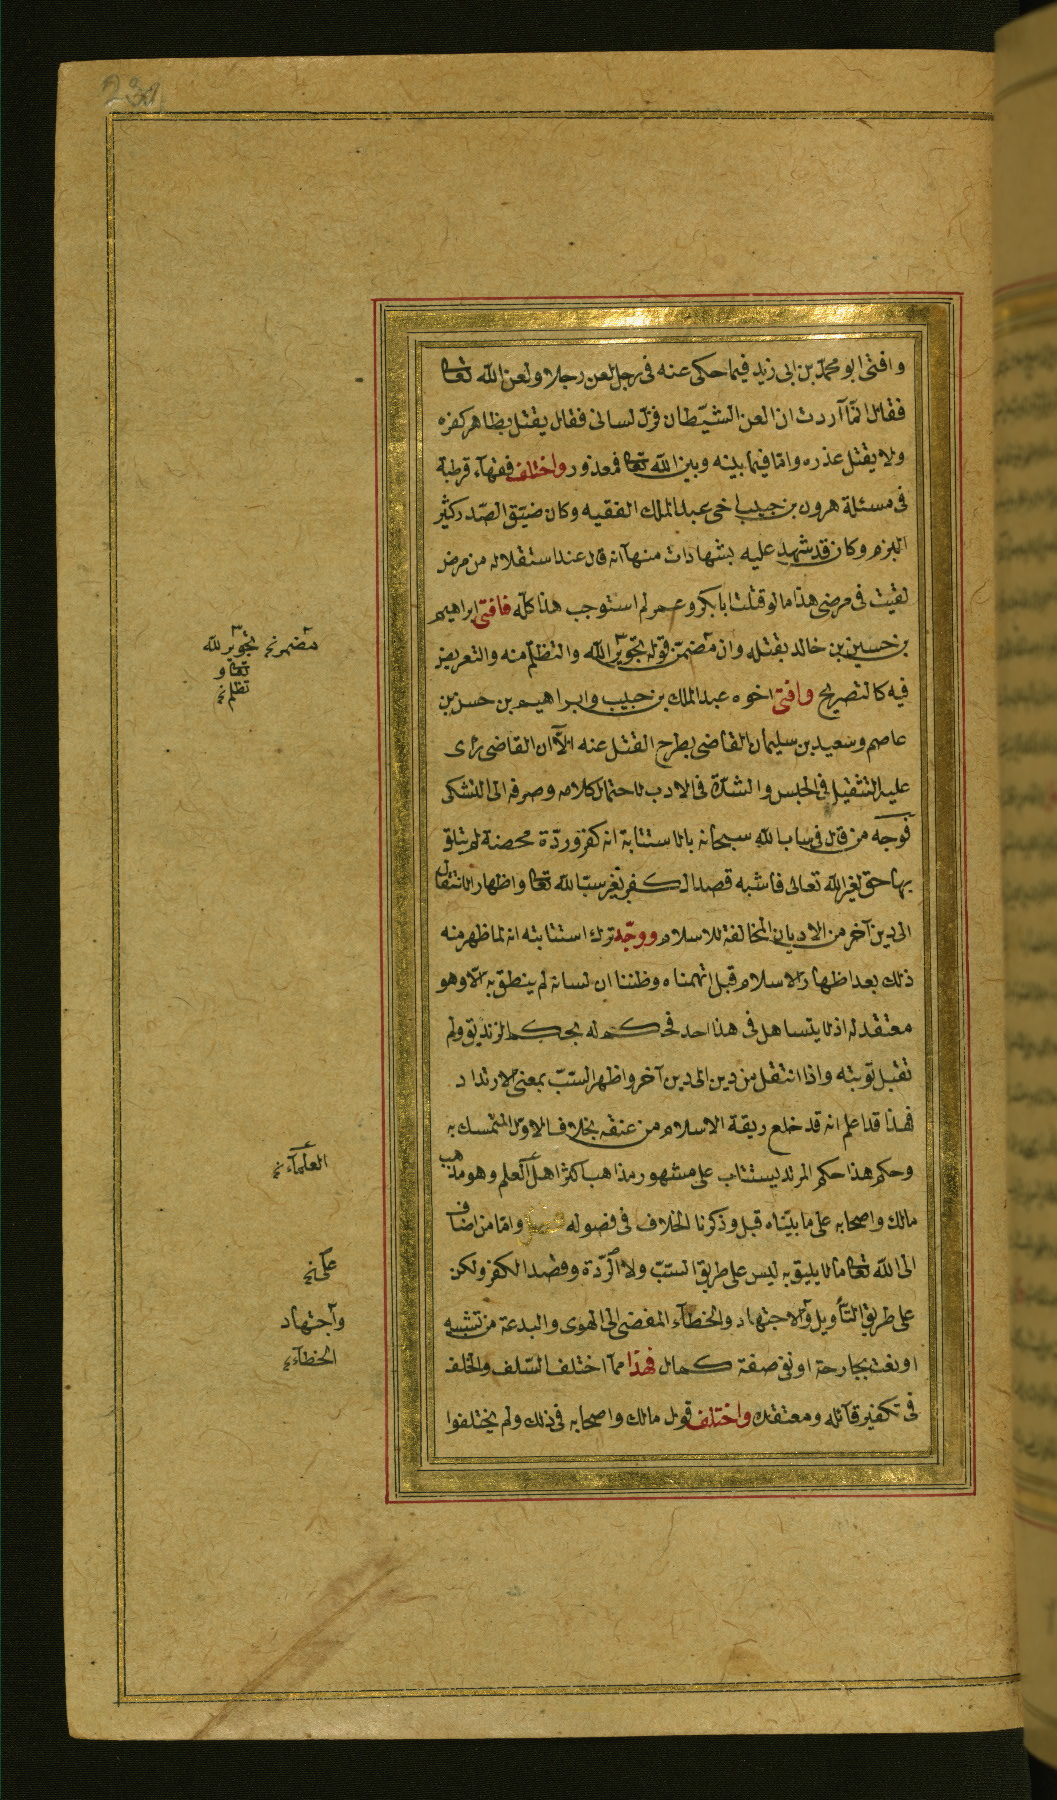 وافتى ابو محمّد بن ابى زيد فيما حكى عنه فى رجل لعن رجلا ولعن الله تعا
فقال انّما آردت ان العن الشيّطان فزلّ لسانى فقال يقتل بظاهر كفره
ولا يقبل عذره وامّا فيما بينه وبين الله تعا فمعذور واختلف فقهآء قرطبة
فى مسئلة هرون بن حبيب اخى عبد الملك الفقيه وكان ضيّق الصّدر كثير
البرم وكان قد شهد عليه بشهادات منها انه قال عند استقلاله من مرض
لقيت فى مرضى هذا ما لو قتلت ابا بكر وعمر لم استوجب هذا كلّه فافتى ابراهيم
بن حسين بن خالد بقتله وان مضمّن قوله تجوير الله والتظلّم منه والتعريض
فيه كالتصريح وافتى اخوه عبد الملك بن حبيب وابراهيم بن حسن بن
عاصم وسعيد بن سليمان القاضى بطرح القتل عنه الّا ان القاضى رأى
عليه التثقيل فى الحبس والشدّة فى الادب لاحتمال كلامه وصرفه الى التشكى
فوجه من قال فى ساب الله سبحانه بالاستتابة انه كفر وردّة محضة لم يتعلق
بها حق لغير الله تعالى فاشبه قصد الكفر بغير سبّ الله تعا واظهار الانتقال
الى دين آخر من الاديان المخالفة للاسلام ووجّه ترك استتابته انه لما ظهر منه
ذلك بعد اظهار الاسلام قبل اتهمناه وظننا ان لسانه لم ينطق به الّا وهو
معتقد له اذ لا يتساهل فى هذا احد فحكم له بحكم الزنديق ولم
تقبل توبته واذا انتقل من دين الى دين آخر واظهر السّبّ بمعنى الارتداد
فهذا قد اعلم انه قد خلع ربقة الاسلام من عنقه بخلاف الاوّل المتمسك به
وحكم هذا حكم المرتد يستتاب على مشهور مذاهب اكثر اهل العلم وهو مذهب
مالك واصحابه على ما بيّناه قبل وذكرنا الخلاف فى فصوله فصل وامّا من اضاف
الى الله تعا ما لا يليق به ليس على طريق السّبّ ولا الرّدة وقصد الكفر ولكن
على طريق التأويل والاجتهاد والخطآء المفضى الى الهوى والبدعة من تشبيه
او نعت بجارحة او نفى صفة كمال فهذا ممّا اختلف السّلف والخلف
فى تكفير قآئله ومعتقده واختلف قول مالك واصحابه فى ذلك ولم يختلفوا
مضمر نخ تجوير لله
تعا و
تظلم نخ
العلمآء نخ
على نخ
وآجتهاد
الخطآء نخ